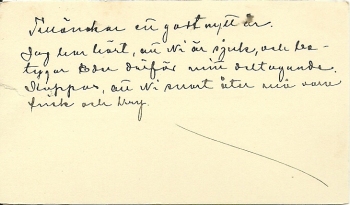 Tillönskar ett gott nytt år.
Jag har hört, att Ni är sjuk, och be-
tygar Eder därför mitt deltagande.
Hoppas, att Ni snart åter må vara
frisk och kry.